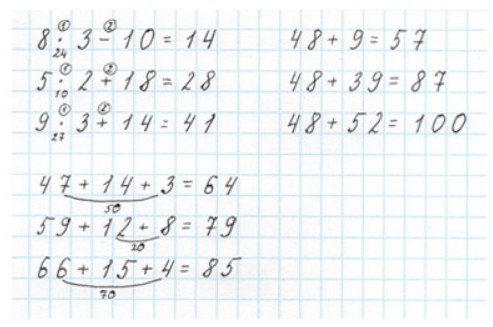 ① ②
8 · 3 - 10 = 14
24
① ②
5 · 2 + 18 = 28
10
① ②
9 · 3 + 14 = 41
27
48 + 9 = 57
48 + 39 = 87
48 + 52 = 100
47 + 14 + 3 = 64
50
59 + 12 + 8 = 79
20
66 + 15 + 4 = 85
70